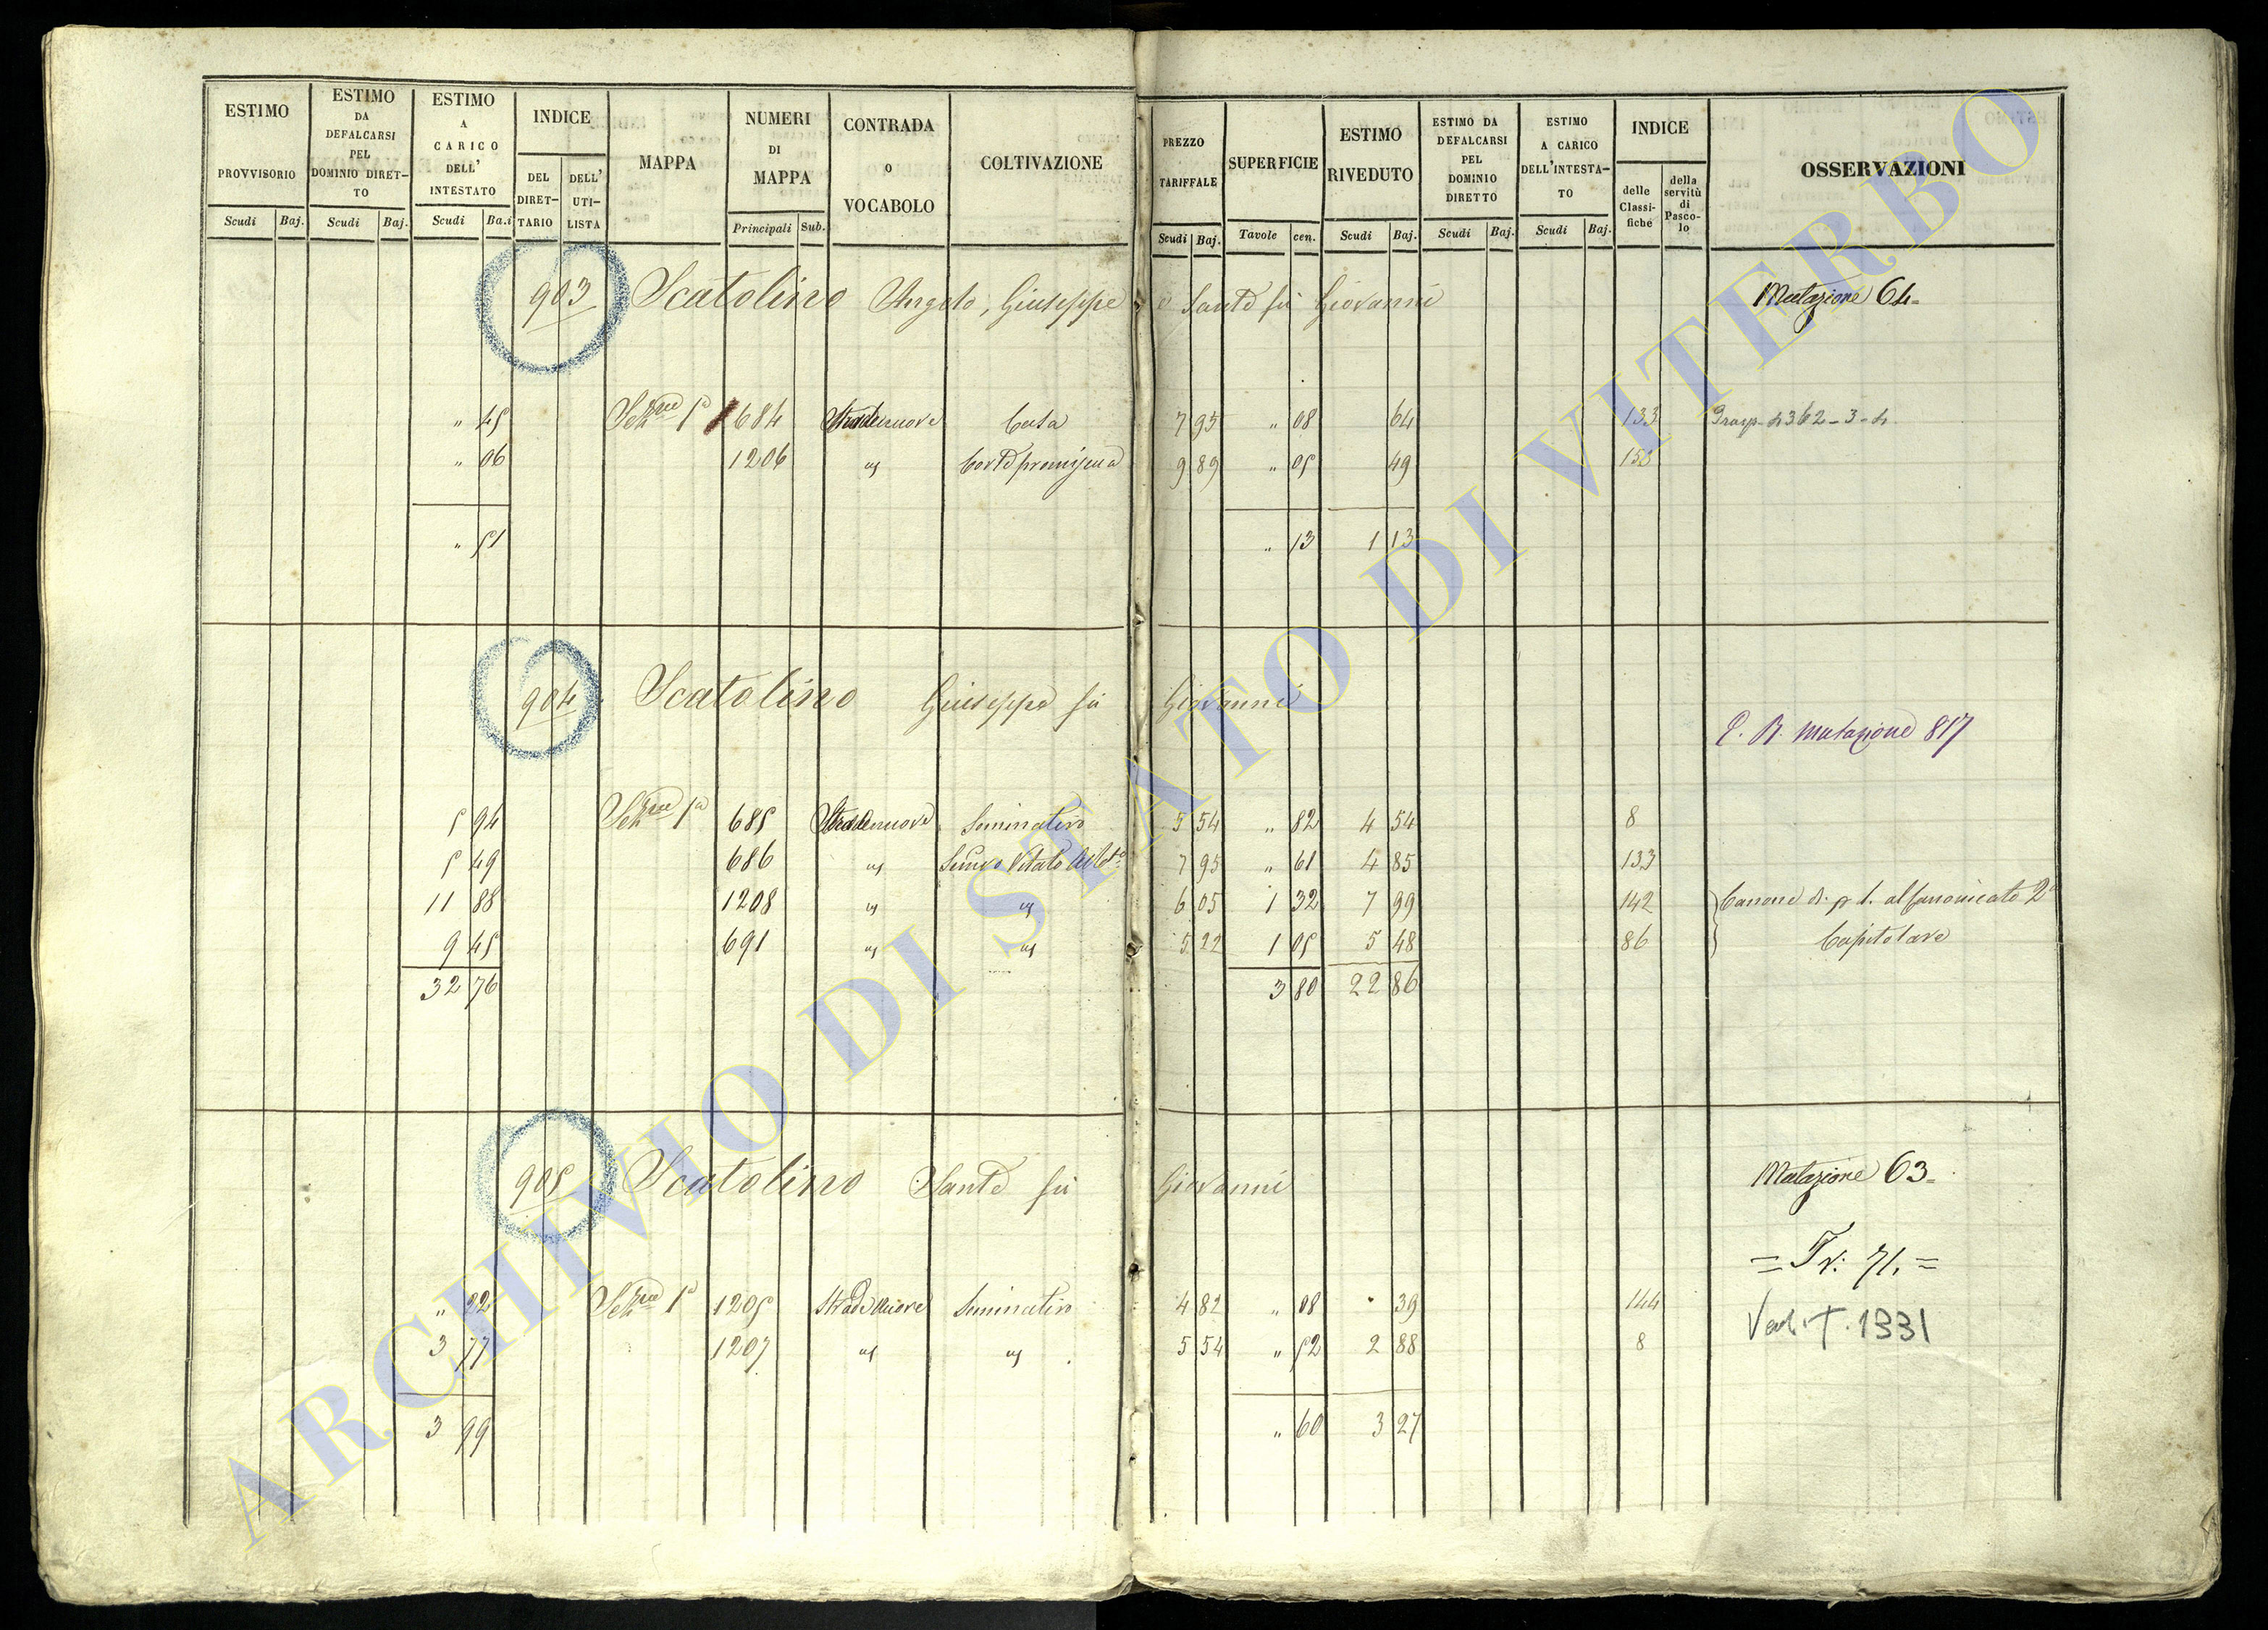 ESTIMO PROVVISORIO
Scudi Baj.
ESTIMO DA DEFALCARSI PEL DOMINIO DIRET-TO
Scudi Baj.
ESTIMO A CARICO DELL' INTESTATO
Scudi Ba.i
INDICE
DEL DIRET-TARIO
DELL' UTI-LISTA
MAPPA
NUMERI DI MAPPA
Principali Sub.
CONTRADA o VOCABOLO
COLTIVAZIONE
PREZZO TARIFFALE
Scudi Baj.
SUPERFICIE
Tavole cen.
ESTIMO RIVEDUTO
Scudi Baj.
ESTIMO DA DEFALCARSI PEL DOMINIO DIRETTO
Scudi Baj.
ESTIMO A CARICO DELL'INTESTA-TO
Scudi Baj.
INDICE
delle Classi-fiche
della servitù di Pasco-lo
OSSERVAZIONI
903 Scatolino Angelo, Giuseppe e Sante fu Giovanni Mutazione 64=
" 45 Sez.ne 1a 684 Stradenuove Casa 7 95 " 08 64 133
" 06 1206 " Corte promiscua 9 89 " 05 49
" 51 " 13 1 13
904 Scatolino Giuseppe fu Giovanni
P. R. Mutazione 817
5 94 Sez.ne 1a 685 Stradenuove Seminativo 5 54 " 82 4 54 8
5 49 686 " Semvo Vitato 7 95 " 61 4 85 133
11 88 1208 " " 6 05 1 32 7 99 142 Canone al Canonicato 2o
9 45 691 " " 5 22 1 05 5 48 86 Capitolare
32 76 3 80 22 86
905 Scatolino Sante fu Giovanni Mutazione 63=
= Tr: 71. =
" 22 Sez.ne 1a 1205 Strade Nuove Seminativo 4 82 " 08 39 144
T. 1331
3 77 1207 " " 5 54 " 52 2 88 8
3 99 " 60 3 27
ARCHIVIO DI STATO DI VITERBO